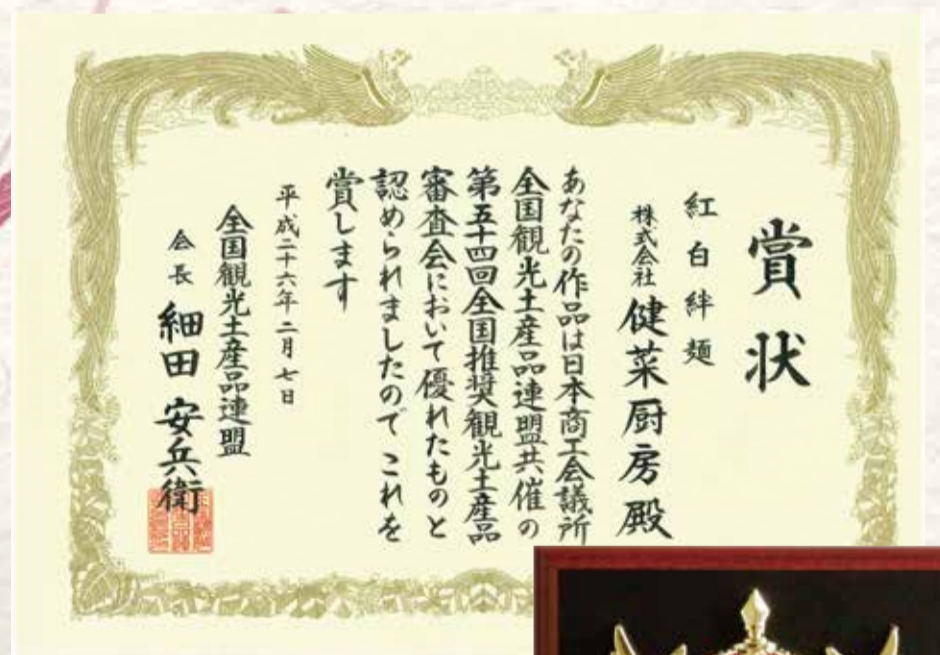 賞状
紅白絆麺
株式会社 健菜厨房殿
あなたの作品は日本商工会議所
全国観光土産品連盟共催の
第五十四回全国推奨観光土産品
審査会において優れたものと
認められましたので これを
賞します
平成二十六年二月七日
全国観光土産品連盟
会長 細田安兵衛